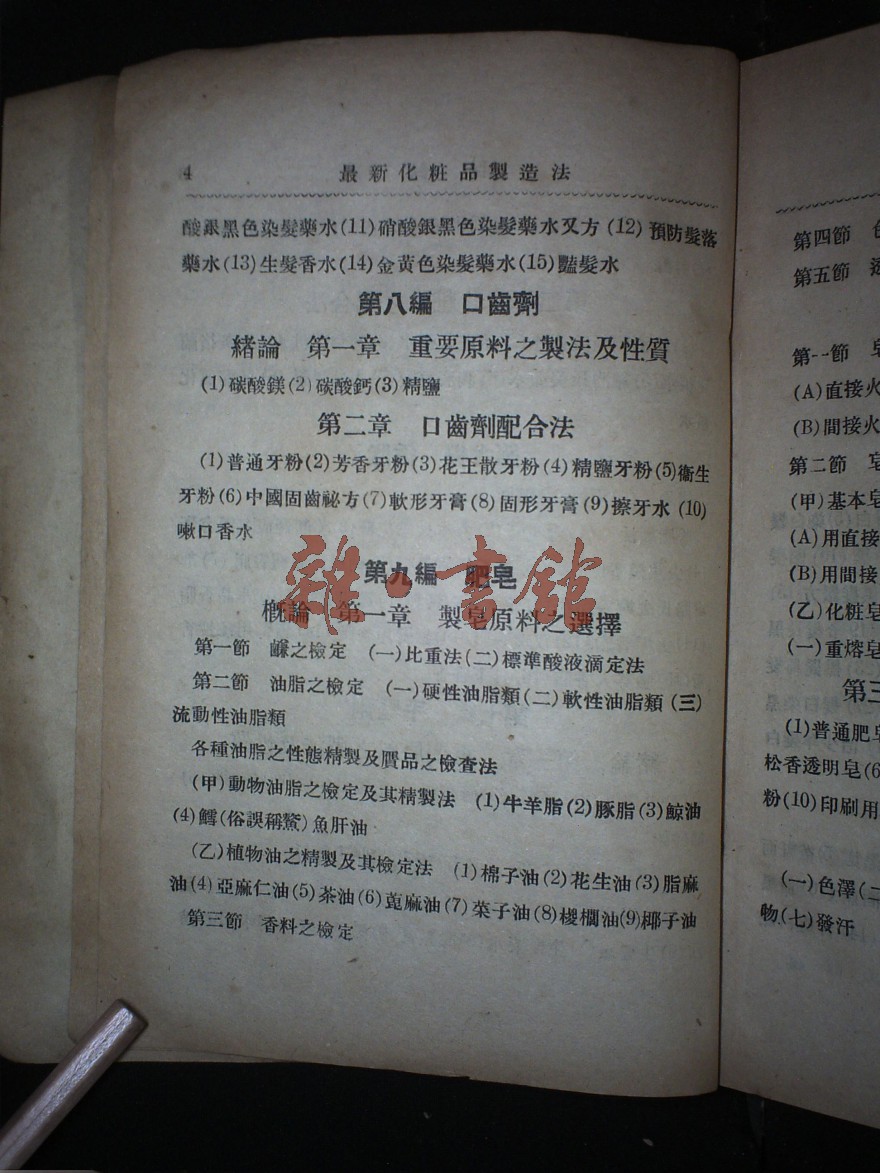 4 最新化粧品製造法
酸銀黑色染髮藥水(11)硝酸銀黑色染髮藥水又方(12)預防髮落
藥水(13)生髮香水(14)金黃色染髮藥水(15)豔髮水
第八編 口齒劑
緒論 第一章 重要原料之製法及性質
(1)碳酸鎂(2)碳酸鈣(3)精鹽
第二章 口齒劑配合法
(1)普通牙粉(2)芳香牙粉(3)花王散牙粉(4)精鹽牙粉(5)衞生
牙粉(6)中國固齒祕方(7)軟形牙膏(8)固形牙膏(9)擦牙水(10)
嗽口香水
第九編 肥皂
概論 第一章 製皂原料之選擇
第一節 鹻之檢定 (一)比重法(二)標準酸液滴定法
第二節 油脂之檢定 (一)硬性油脂類(二)軟性油脂類(三)
流動性油脂類
各種油脂之性態精製及贋品之檢查法
(甲)動物油脂之檢定及其精製法 (1)牛羊脂(2)豚脂(3)鯨油
(4)鱈(俗誤稱鰵)魚肝油
(乙)植物油之精製及其檢定法 (1)棉子油(2)花生油(3)脂麻
油(4)亞麻仁油(5)茶油(6)萞麻油(7)菜子油(8)椶櫚油(9)椰子油
第三節 香料之檢定
雜·書館
第四節
第五節
第一節 皂
(A)直接火
(B)間接火
第二節 皂
(甲)基本皂
(A)用直接
(B)用間接
(乙)化粧皂
(一)重熔皂
第三
(1)普通肥皂
松香透明皂(6
粉(10)印刷用
(一)色澤(二
物(七)發汗